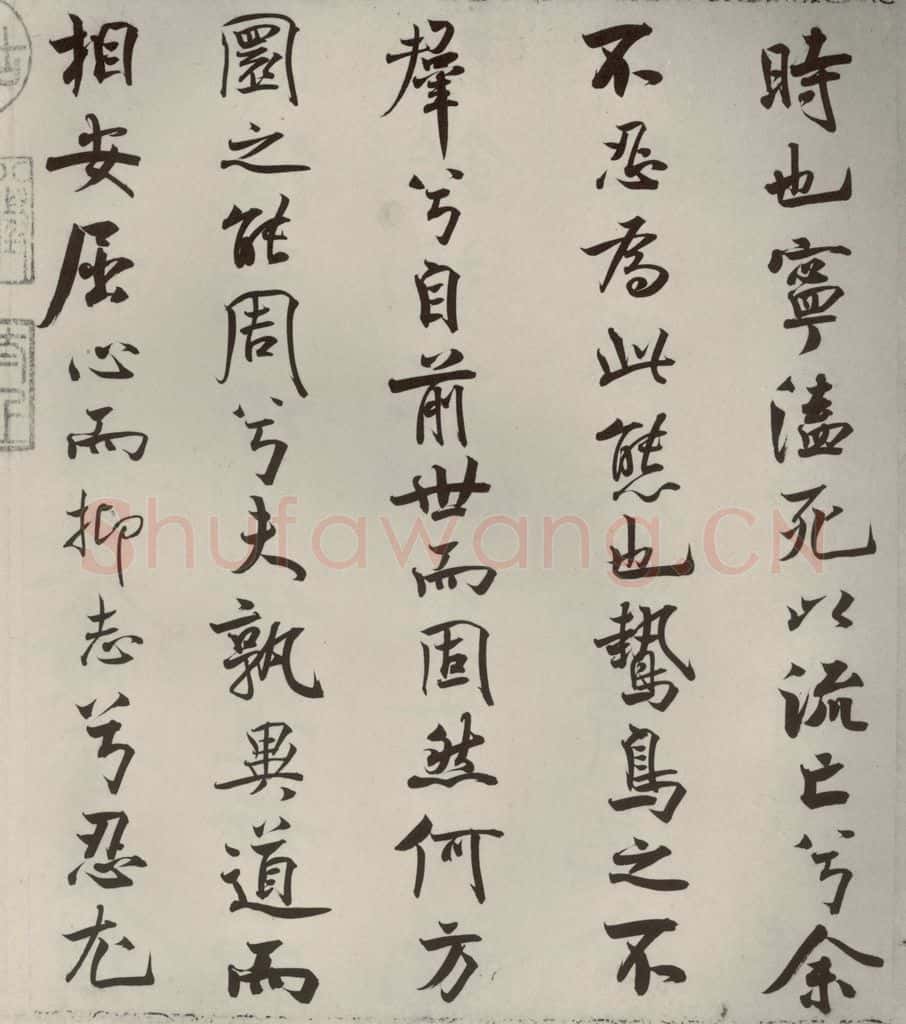 時也寧溘死以流亡兮余
不忍為此態也鷙鳥之不
羣兮自前世而固然何方
圜之能周兮夫孰異道而
相安屈心而抑志兮忍尤
Shufawang.CN